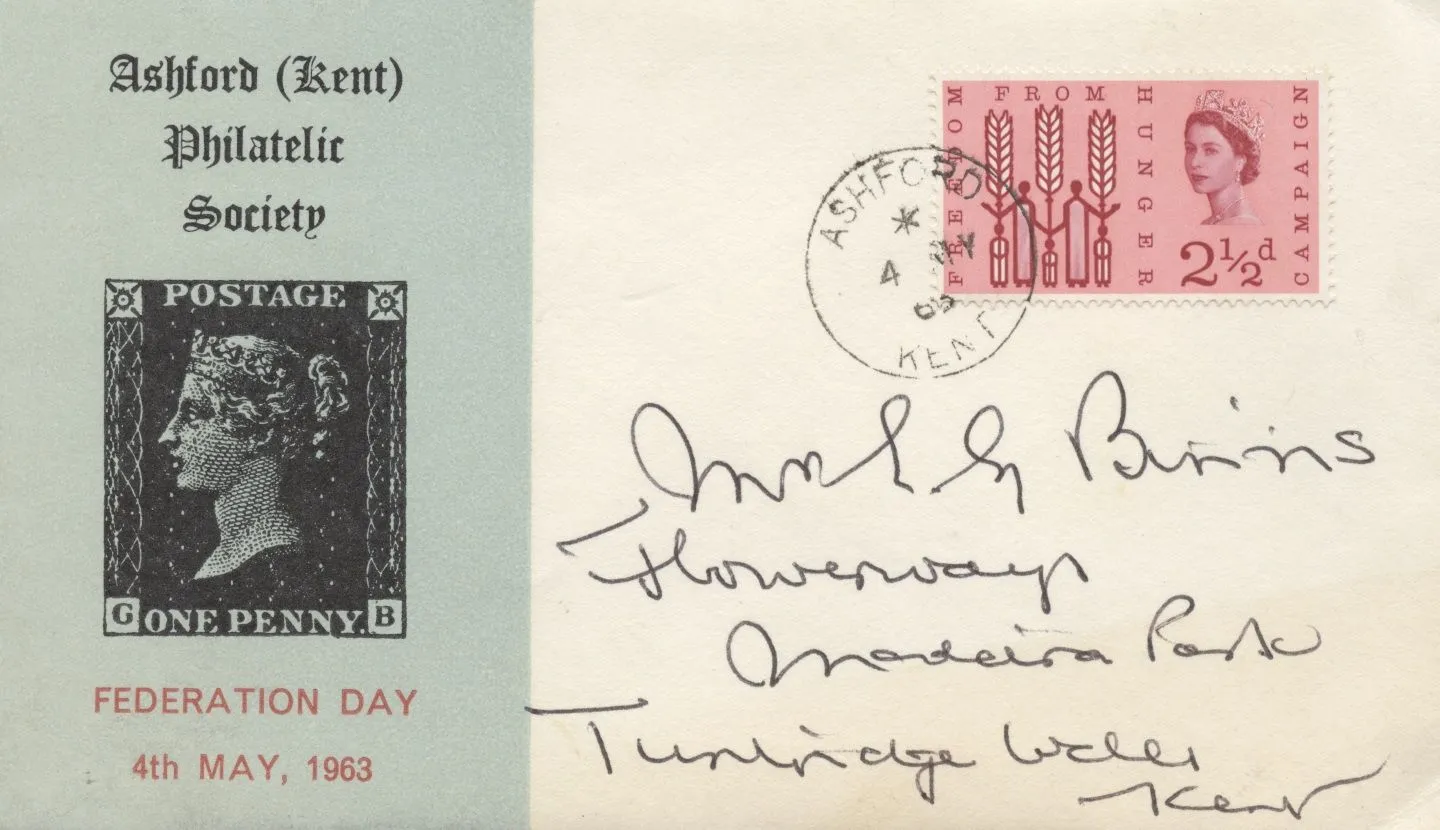 Ashford (Kent)
Philatelic
Society
POSTAGE
G ONE PENNY. B
FEDERATION DAY
4th MAY, 1963
FREEDOM FROM HUNGER CAMPAIGN
2½d
ASHFORD
*
4 MY
63
KENT
Mr E. G Binns
Flowerways
Madeira Park
Tunbridge Wells
Kent